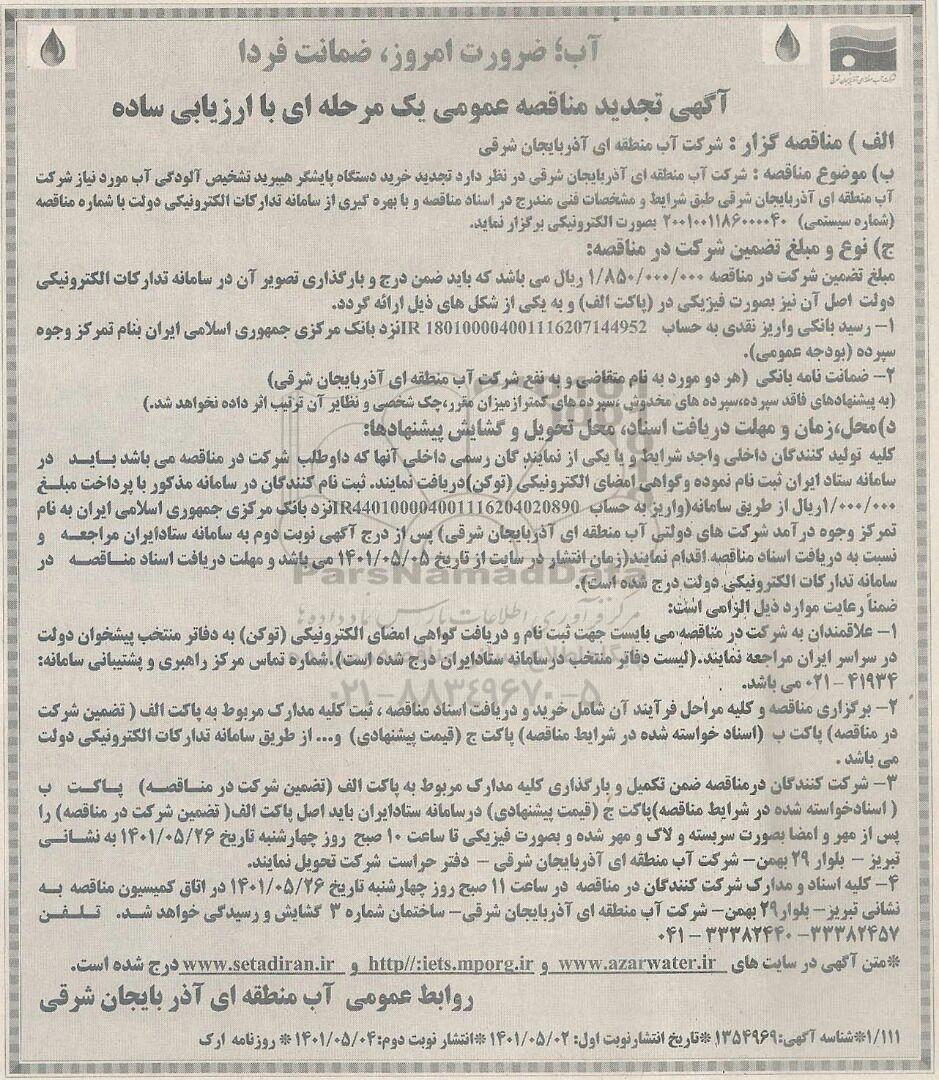 آب؛ ضرورت امروز، ضمانت فردا
شرکت آب منطقه ای آذربایجان شرقی
آگهی تجدید مناقصه عمومی یک مرحله ای با ارزیابی ساده
الف ) مناقصه گزار : شرکت آب منطقه ای آذربایجان شرقی
ب) موضوع مناقصه : شرکت آب منطقه ای آذربایجان شرقی در نظر دارد تجدید خرید دستگاه پایشگر هیبرید تشخیص آلودگی آب مورد نیاز شرکت
آب منطقه ای آذربایجان شرقی طبق شرایط و مشخصات فنی مندرج در اسناد مناقصه و با بهره گیری از سامانه تدارکات الکترونیکی دولت با شماره مناقصه
(شماره سیستمی) ۲۰۰۱۰۰۱۱۸۶۰۰۰۰۴۰ بصورت الکترونیکی برگزار نماید.
ج) نوع و مبلغ تضمین شرکت در مناقصه:
مبلغ تضمین شرکت در مناقصه ۱/۸۵۰/۰۰۰/۰۰۰ ریال می باشد که باید ضمن درج و بارگذاری تصویر آن در سامانه تدارکات الکترونیکی
دولت اصل آن نیز بصورت فیزیکی در (پاکت الف) و به یکی از شکل های ذیل ارائه گردد.
۱- رسید بانکی واریز نقدی به حساب IR 180100004001116207144952نزد بانک مرکزی جمهوری اسلامی ایران بنام تمرکز وجوه
سپرده (بودجه عمومی).
۲- ضمانت نامه بانکی (هر دو مورد به نام متقاضی و به نفع شرکت آب منطقه ای آذربایجان شرقی)
(به پیشنهادهای فاقد سپرده،سپرده های مخدوش ،سپرده های کمترازمیزان مقرر،چک شخصی و نظایر آن ترتیب اثر داده نخواهد شد.)
د)محل،زمان و مهلت دریافت اسناد، محل تحویل و گشایش پیشنهادها:
کلیه تولید کنندگان داخلی واجد شرایط و یا یکی از نمایند گان رسمی داخلی آنها که داوطلب شرکت در مناقصه می باشد باید در
سامانه ستاد ایران ثبت نام نموده وگواهی امضای الکترونیکی (توکن)دریافت نمایند. ثبت نام کنندگان در سامانه مذکور با پرداخت مبلغ
۱/۰۰۰/۰۰۰ریال از طریق سامانه(واریز به حساب IR440100004001116204020890نزد بانک مرکزی جمهوری اسلامی ایران به نام
تمرکز وجوه در آمد شرکت های دولتی آب منطقه ای آذربایجان شرقی) پس از درج آگهی نوبت دوم به سامانه ستادایران مراجعه و
نسبت به دریافت اسناد مناقصه اقدام نمایند(زمان انتشار در سایت از تاریخ ۱۴۰۱/۰۵/۰۵ می باشد و مهلت دریافت اسناد مناقصه در
سامانه تدارکات الکترونیکی دولت درج شده است).
ParsNamadData
ضمناً رعایت موارد ذیل الزامی است:
مرکز فرآوری اطلاعات پارس نماد داده ها
۱- علاقمندان به شرکت در مناقصه می بایست جهت ثبت نام و دریافت گواهی امضای الکترونیکی (توکن) به دفاتر منتخب پیشخوان دولت
در سراسر ایران مراجعه نمایند.(لیست دفاتر منتخب درسامانه ستادایران درج شده است).شماره تماس مرکز راهبری و پشتیبانی سامانه:
۴۱۹۳۴ - ۰۲۱ می باشد.
۰۲۱-۸۸۳۴۹۶۷۰-۵
۲- برگزاری مناقصه و کلیه مراحل فرآیند آن شامل خرید و دریافت اسناد مناقصه ، ثبت کلیه مدارک مربوط به پاکت الف ( تضمین شرکت
در مناقصه) پاکت ب (اسناد خواسته شده در شرایط مناقصه) پاکت ج (قیمت پیشنهادی) و... از طریق سامانه تدارکات الکترونیکی دولت
می باشد .
۳- شرکت کنندگان درمناقصه ضمن تکمیل و بارگذاری کلیه مدارک مربوط به پاکت الف (تضمین شرکت در مناقصه) پاکت ب
( اسنادخواسته شده در شرایط مناقصه)پاکت ج (قیمت پیشنهادی) درسامانه ستادایران باید اصل پاکت الف( تضمین شرکت در مناقصه) را
پس از مهر و امضا بصورت سربسته و لاک و مهر شده و بصورت فیزیکی تا ساعت ۱۰ صبح روز چهارشنبه تاریخ ۱۴۰۱/۰۵/۲۶ به نشانی
تبریز - بلوار ۲۹ بهمن- شرکت آب منطقه ای آذربایجان شرقی - دفتر حراست شرکت تحویل نمایند.
۴- کلیه اسناد و مدارک شرکت کنندگان در مناقصه در ساعت ۱۱ صبح روز چهارشنبه تاریخ ۱۴۰۱/۰۵/۲۶ در اتاق کمیسیون مناقصه به
نشانی تبریز- بلوار۲۹ بهمن- شرکت آب منطقه ای آذربایجان شرقی- ساختمان شماره ۳ گشایش و رسیدگی خواهد شد. تلفن
۳۳۳۸۲۴۵۷- ۳۳۳۸۲۴۴۰ - ۰۴۱
*متن آگهی در سایت های www.azarwater.ir و http//:iets.mporg.ir و www.setadiran.ir درج شده است.
روابط عمومی آب منطقه ای آذربایجان شرقی
۱/۱۱۱*شناسه آگهی:۱۳۵۴۹۶۹ *تاریخ انتشارنوبت اول: ۱۴۰۱/۰۵/۰۲ *انتشار نوبت دوم:۱۴۰۱/۰۵/۰۴ * روزنامه ارک